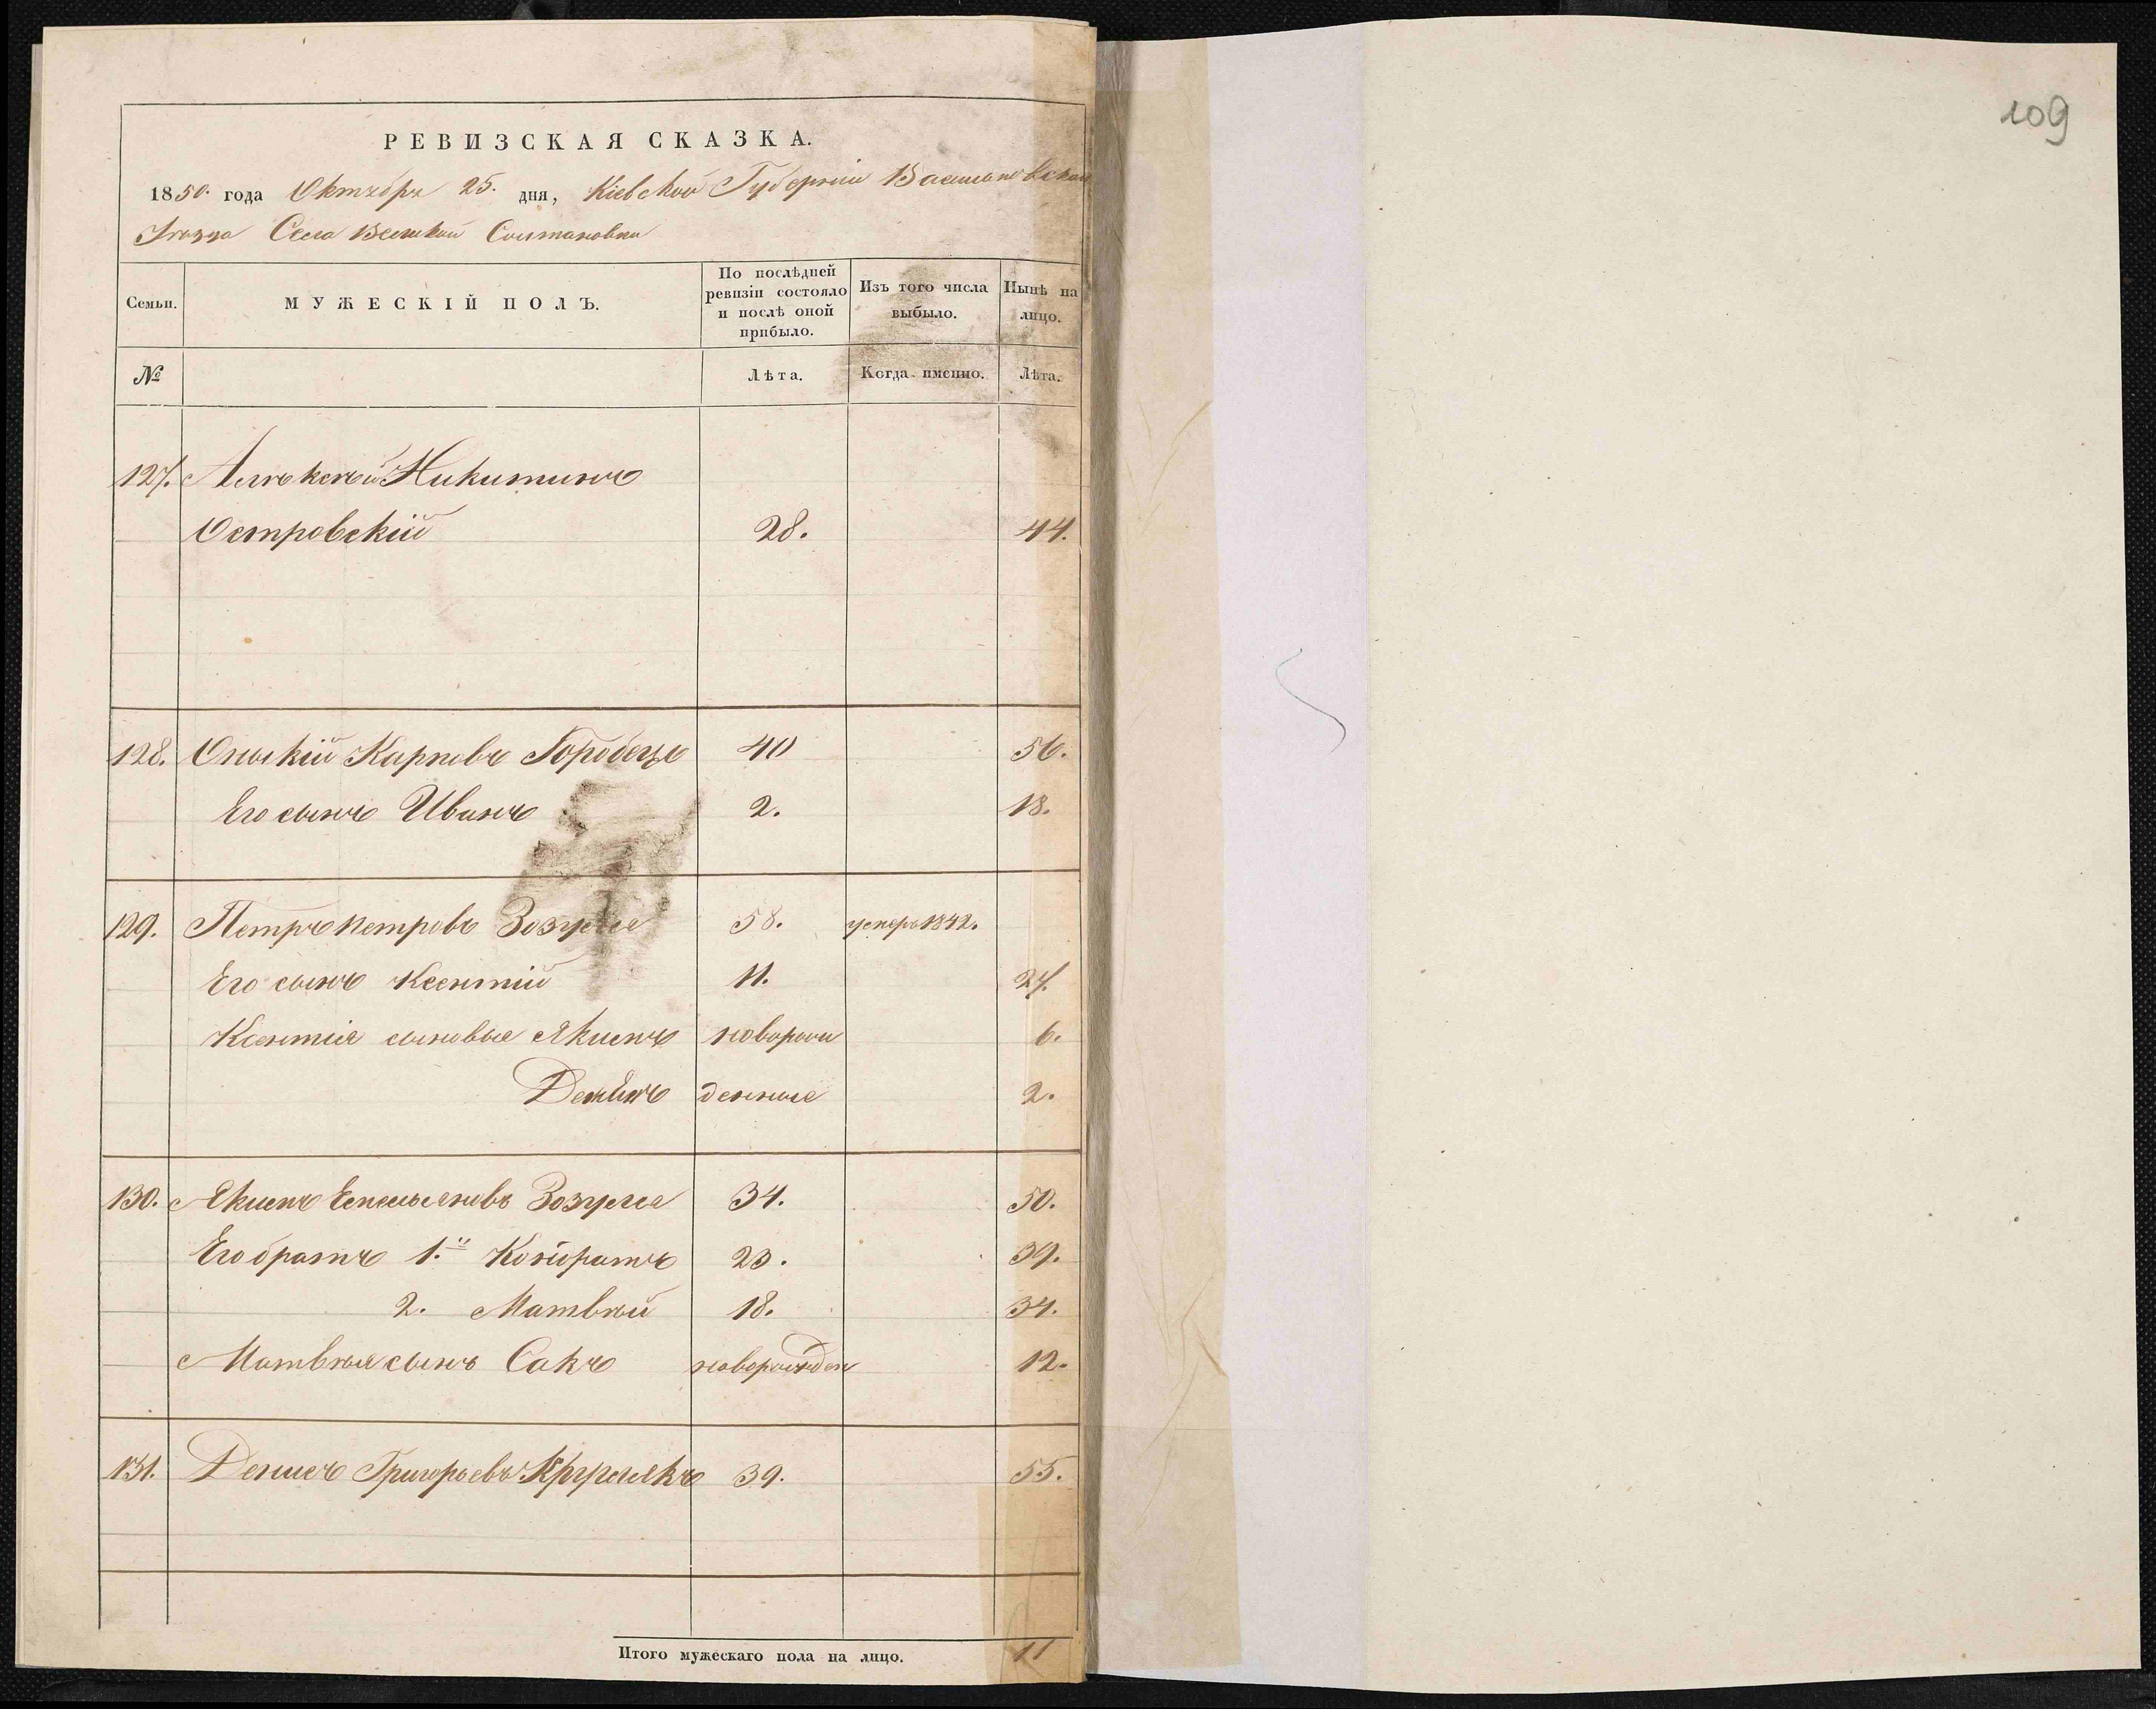 109
РЕВИЗСКАЯ СКАЗКА.
1850. года Октября 25. дня, Кіевской Губерніи Васильковскаго
Уѣзда Села Великой Солтановки
Семьи. МУЖЕСКІЙ ПОЛЪ. По послѣдней ревизіи состояло и послѣ оной прибыло. Изъ того числа выбыло. Нынѣ на лицо.
№ Лѣта. Когда именно. Лѣта.
127. Алѣксѣй Никитинъ
Островскій 28. 44.
128. Карповъ Горобецъ 40 56.
Его сынъ Иванъ 2. 18.
129. Петръ Петровъ Зозуля 58. умеръ 1842.
Его сынъ Ксентій 11. 27.
Ксентія сыновья Якимъ новорож 6.
Демянъ денные 2.
130. Якимъ Емельяновъ Зозуля 34. 50.
Его братъ 1.й Кондратъ 23. 39.
2. Матвѣй 18. 34.
Матвѣя сынъ Сакъ новорожден 12.
131. Денисъ Григорьевъ 39. 55.
Итого мужескаго пола на лицо. 11